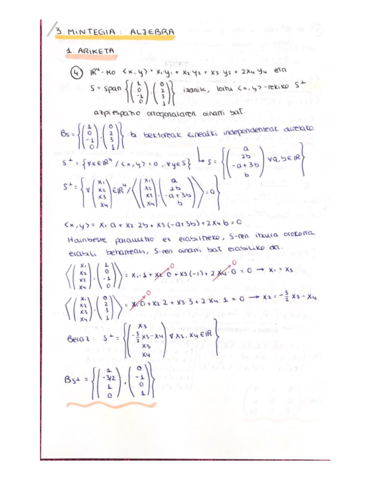 3. MINTEGIA : ALGEBRA
1. ARIKETA
④ ℝ⁴-ko <x,y> = x₁y₁ + x₂y₂ + x₃y₃ + 2x₄y₄ eta
S = span {(1 0 -1 0), (0 2 3 1)} izanik, lortu <x,y>-rekiko S⊥
azpiespazio ortogonalaren oinarri bat.
Bs = {(1 0 -1 0), (0 2 3 1)} bi bektoreak linealki independenteak direlako
S⊥ = {∀x∈ℝ⁴ / <x,y> = 0, ∀y∈S} → S = {(a 2b -a+3b b) ∀a,b∈ℝ}
S⊥ = {∀ (x₁ x₂ x₃ x₄) ∈ ℝ⁴ / <(x₁ x₂ x₃ x₄), (a 2b -a+3b b)> = 0}
<x,y> = x₁a + x₂2b + x₃(-a+3b) + 2x₄b = 0
Hainbeste parametro ez erabiltzeko, S-ren itxura orokorra
erabili beharrean, S-ren oinarri bat erabiliko da.
<(x₁ x₂ x₃ x₄), (1 0 -1 0)> = x₁·1 + x₂·0 + x₃(-1) + 2x₄·0 = 0 → x₁ = x₃
<(x₁ x₂ x₃ x₄), (0 2 3 1)> = x₁·0 + x₂·2 + x₃·3 + 2x₄·1 = 0 → x₂ = -3/2 x₃ - x₄
Beraz: S⊥ = {(x₃ -3/2x₃-x₄ x₃ x₄) ∀x₃,x₄∈ℝ}
Bs⊥ = {(1 -3/2 1 0), (0 -1 0 1)}